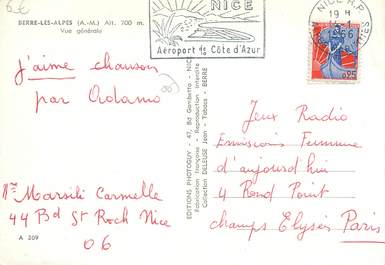 6€
BERRE-LES-ALPES (A.-M.) Alt. 700 m.
Vue générale
NICE
Aéroport de la Côte d'Azur
NICE R.P.
19 H
1966
0,25
J'aime chanson
par Adamo
Mme Marsili Carmelle
44 Bd St Roch Nice
06
A 209
EDITIONS PHOTOGUY - 47, Bd Gambetta - NICE
Fabrication française - Reproduction interdite
Collection DELEUSE Jean - Tabacs - BERRE
Jeux Radio
Emissions Femme
d'aujourd'hui
4 Rond Point
champs Elysées Paris